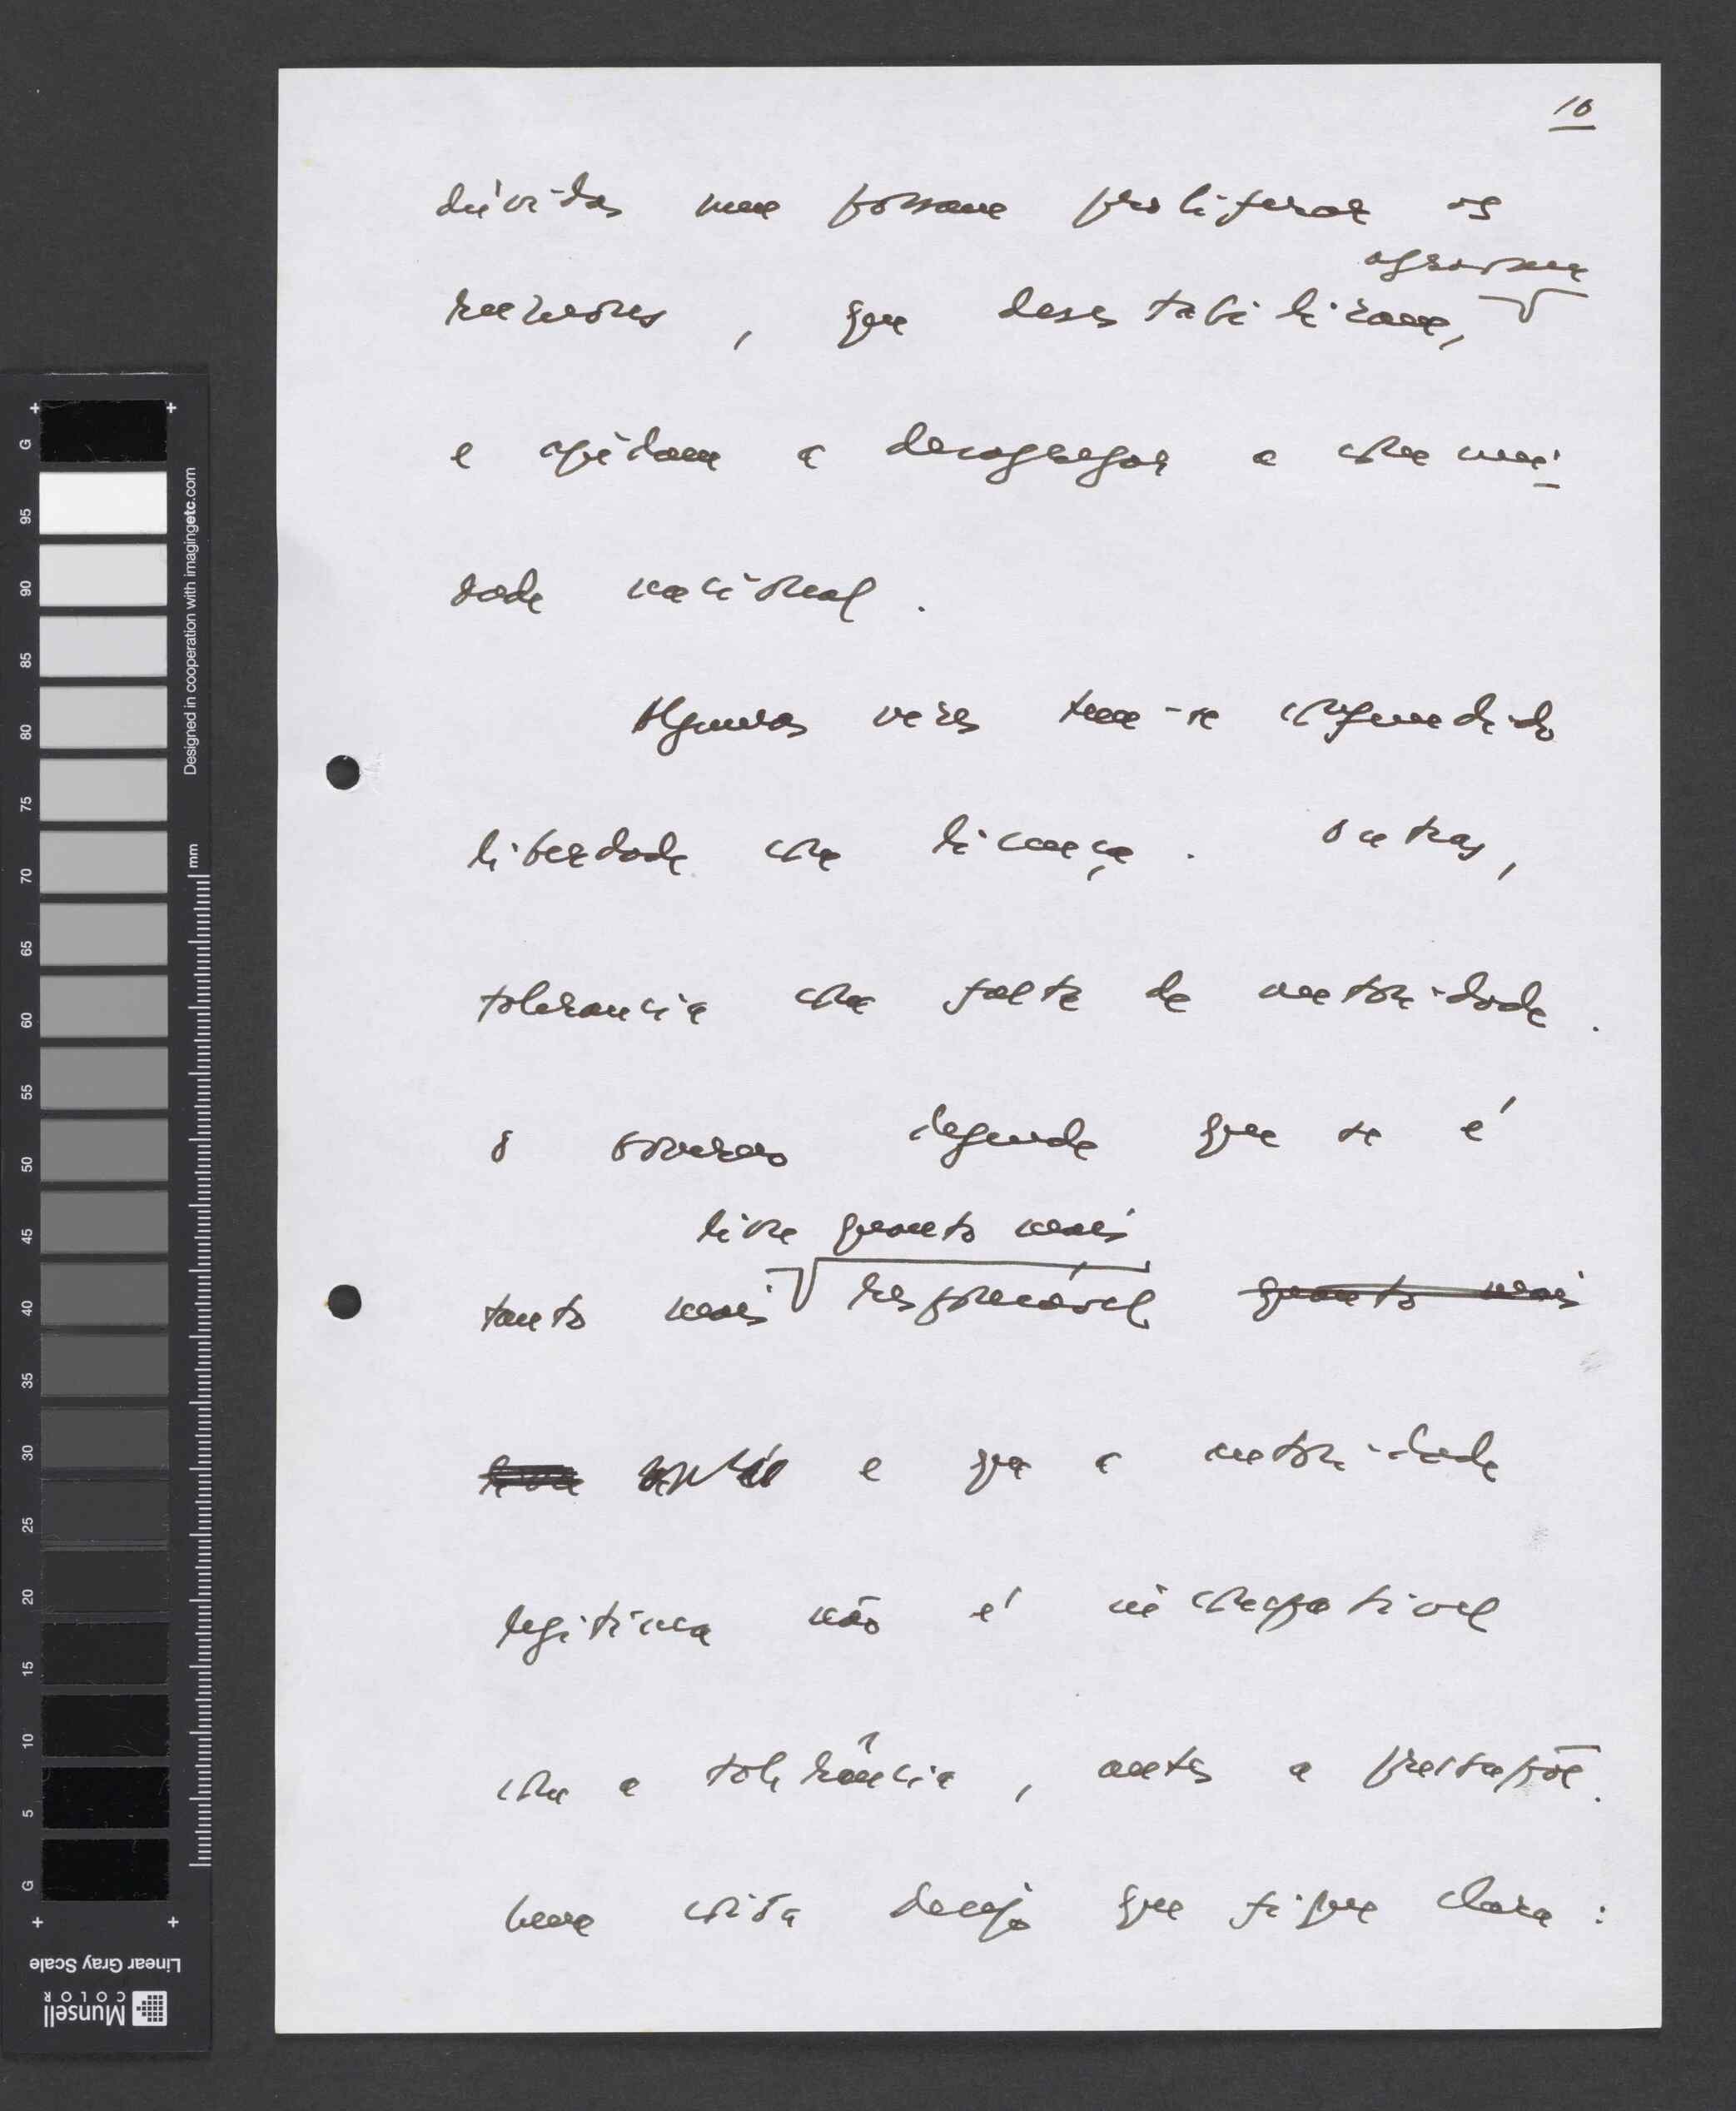 10
dúvidas nem possam proliferar os
agravam
rumores, que desestabilizam,
e ajudam a desagregar a comuni
dade nacional.
Algumas vezes tem-se confundido
liberdade com licença. Outras,
tolerancia com falta de autoridade.
O Governo defende que se é
livre quanto mais
tanto mais responsável quanto mais
livre e que a autoridade
legítima não é incompatível
com a tolerância, antes a pressupõe.
Uma coisa desejo que fique clara:
Designed in cooperation with imagingetc.com
mm
G
95
90
85
80
75
70
65
60
55
50
45
40
35
30
25
20
15
10
5
G
Linear Gray Scale
Munsell
COLOR